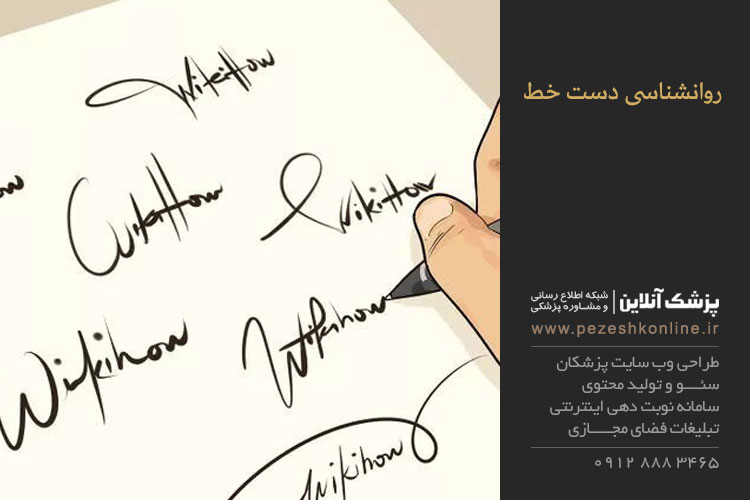 WikiHow
ow
WikiHow
WikiHow
Wikihow
Wikihow
Wikihow
روانشناسی دست خط
پزشک آنلاین | شبکه اطلاع رسانی و مشاوره پزشکی
www.pezeshkonline.ir
طراحی وب سایت پزشکان
سئـــو و تولید محتوی
سامانه نوبت دهی اینترنتی
تبلیغات فضای مجـــازی
۰۹۱۲ ۸۸۸ ۳۴۶۵